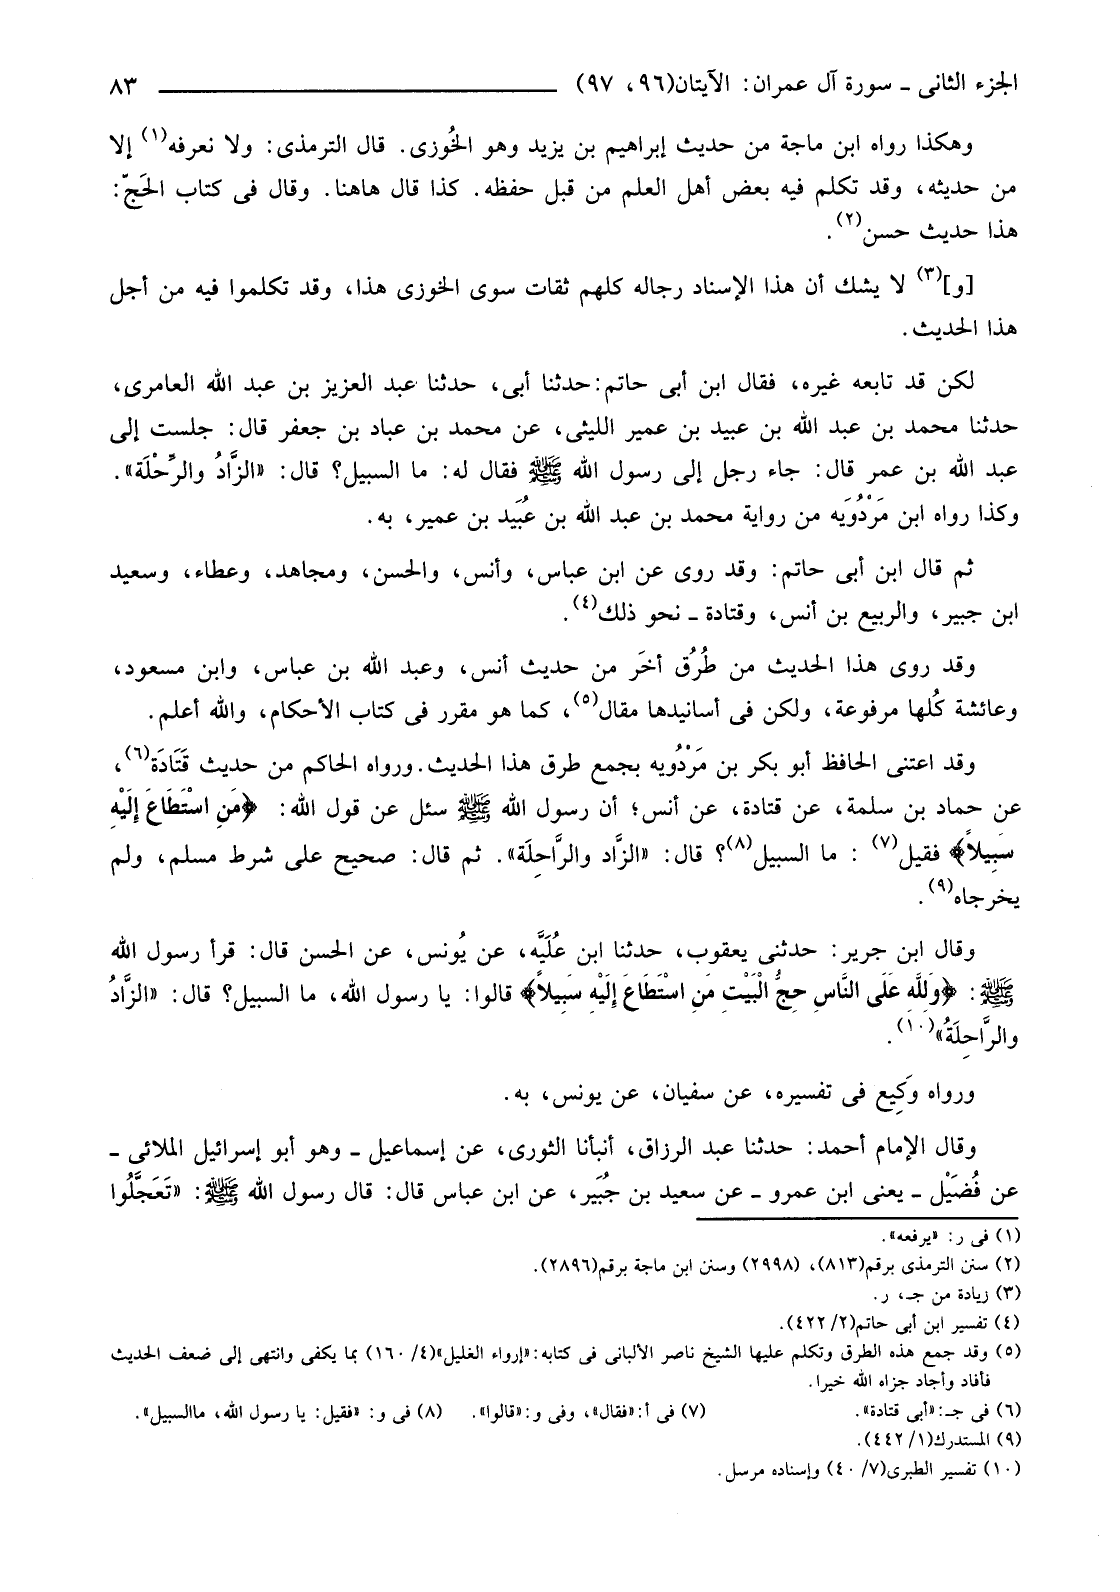 الجزء الثانى ـ سورة آل عمران: الآيتان(٩٦، ٩٧) ٨٣
وهكذا رواه ابن ماجة من حديث إبراهيم بن يزيد وهو الخُوزى. قال الترمذى: ولا نعرفه(١) إلا
من حديثه، وقد تكلم فيه بعض أهل العلم من قبل حفظه. كذا قال هاهنا. وقال فى كتاب الحَجّ:
هذا حديث حسن(٢).
[و](٣) لا يشك أن هذا الإسناد رجاله كلهم ثقات سوى الخوزى هذا، وقد تكلموا فيه من أجل
هذا الحديث.
لكن قد تابعه غيره، فقال ابن أبى حاتم:حدثنا أبى، حدثنا عبد العزيز بن عبد الله العامرى،
حدثنا محمد بن عبد الله بن عبيد بن عمير الليثى، عن محمد بن عباد بن جعفر قال: جلست إلى
عبد الله بن عمر قال: جاء رجل إلى رسول الله ﷺ فقال له: ما السبيل؟ قال: «الزَّادُ والرِّحْلَة».
وكذا رواه ابن مَرْدُوَيه من رواية محمد بن عبد الله بن عُبَيد بن عمير، به.
ثم قال ابن أبى حاتم: وقد روى عن ابن عباس، وأنس، والحسن، ومجاهد، وعطاء، وسعيد
ابن جبير، والربيع بن أنس، وقتادة ـ نحو ذلك(٤).
وقد روى هذا الحديث من طُرُق أخَر من حديث أنس، وعبد الله بن عباس، وابن مسعود،
وعائشة كُلها مرفوعة، ولكن فى أسانيدها مقال(٥)، كما هو مقرر فى كتاب الأحكام، والله أعلم.
وقد اعتنى الحافظ أبو بكر بن مَرْدُويه بجمع طرق هذا الحديث.ورواه الحاكم من حديث قَتَادَة(٦)،
عن حماد بن سلمة، عن قتادة، عن أنس؛ أن رسول الله ﷺ سئل عن قول الله: ﴿مَنِ اسْتَطَاعَ إِلَيْهِ
سَبِيلاً﴾ فقيل(٧) : ما السبيل(٨)؟ قال: «الزَّاد والرَّاحِلَة». ثم قال: صحيح على شرط مسلم، ولم
يخرجاه(٩).
وقال ابن جرير: حدثنى يعقوب، حدثنا ابن عُلَيَّه، عن يُونس، عن الحسن قال: قرأ رسول الله
ﷺ: ﴿وَلِلَّهِ عَلَى النَّاسِ حِجُّ الْبَيْتِ مَنِ اسْتَطَاعَ إِلَيْهِ سَبِيلاً﴾ قالوا: يا رسول الله، ما السبيل؟ قال: «الزَّادُ
والرَّاحِلَةُ»(١٠).
ورواه وَكِيع فى تفسيره، عن سفيان، عن يونس، به.
وقال الإمام أحمد: حدثنا عبد الرزاق، أنبأنا الثورى، عن إسماعيل ـ وهو أبو إسرائيل الملائى ـ
عن فُضَيْل ـ يعنى ابن عمرو ـ عن سعيد بن جُبَير، عن ابن عباس قال: قال رسول الله ﷺ: «تَعَجَّلُوا
(١) فى ر: «يرفعه».
(٢) سنن الترمذى برقم(٨١٣)، (٢٩٩٨) وسنن ابن ماجة برقم(٢٨٩٦).
(٣) زيادة من جـ، ر.
(٤) تفسير ابن أبى حاتم(٢/ ٤٢٢).
(٥) وقد جمع هذه الطرق وتكلم عليها الشيخ ناصر الألبانى فى كتابه:«إرواء الغليل»(٤/ ١٦٠) بما يكفى وانتهى إلى ضعف الحديث
فأفاد وأجاد جزاه الله خيرا.
(٦) فى جـ:«أبى قتادة». (٧) فى أ:«فقال»، وفى و:«قالوا». (٨) فى و: «فقيل: يا رسول الله، ماالسبيل».
(٩) المستدرك(١/ ٤٤٢).
(١٠) تفسير الطبرى(٧/ ٤٠) وإسناده مرسل.